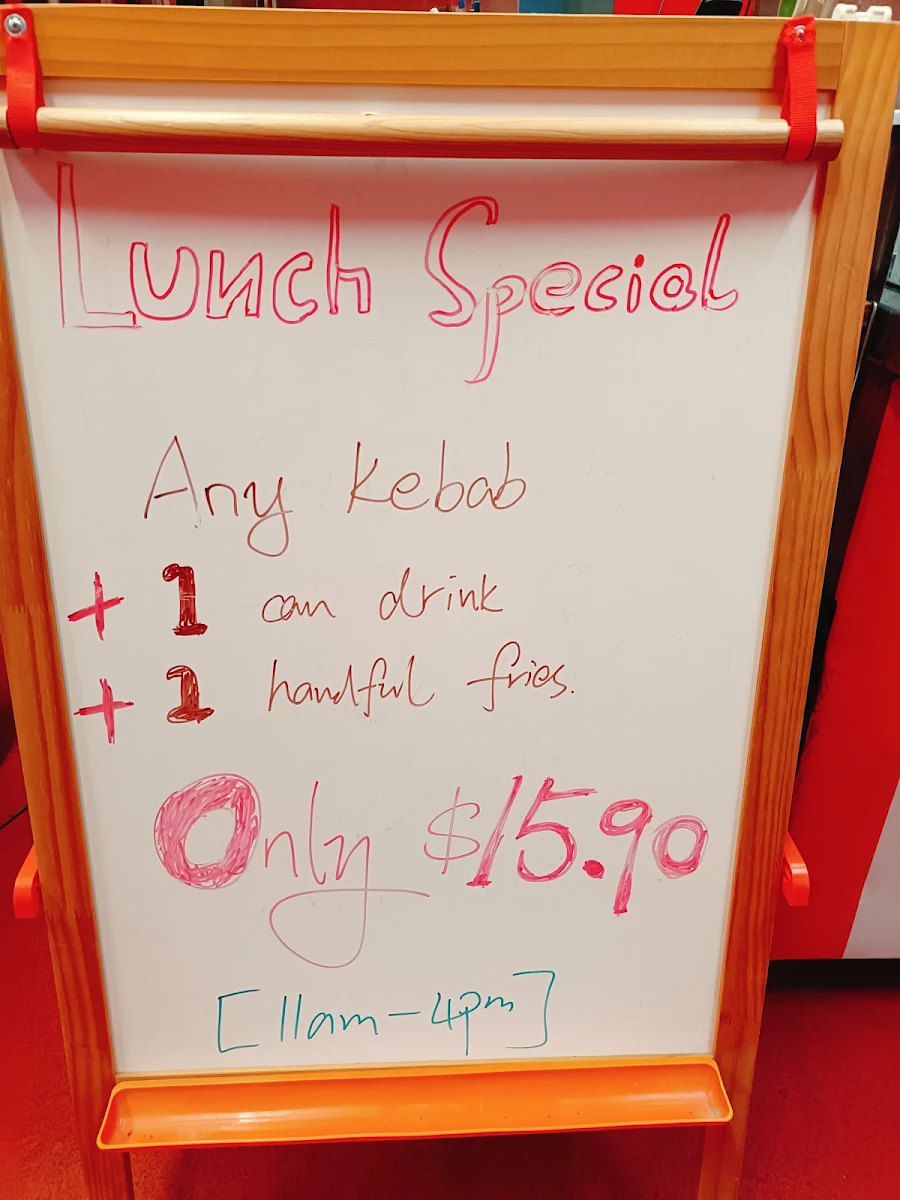 Lunch Special
Any Kebab
+ 1 can drink
+ 1 handful fries.
Only $15.90
[11am-4pm]